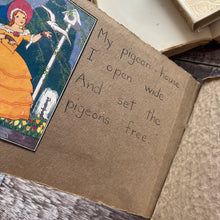 My pigeon house
I open wide
And set the
pigeons free